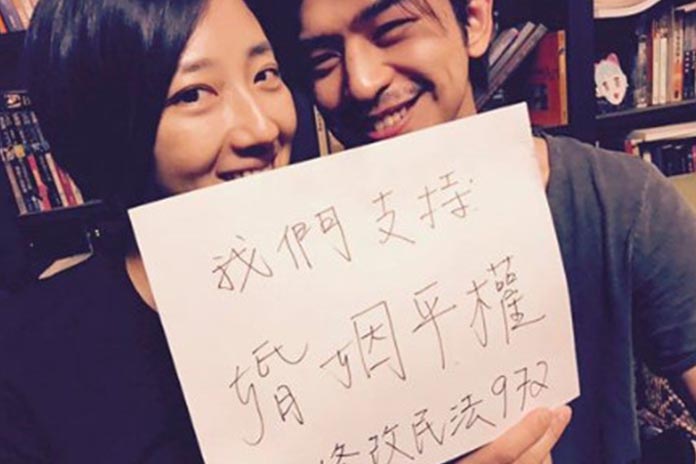 我們支持
婚姻平權
修改民法972